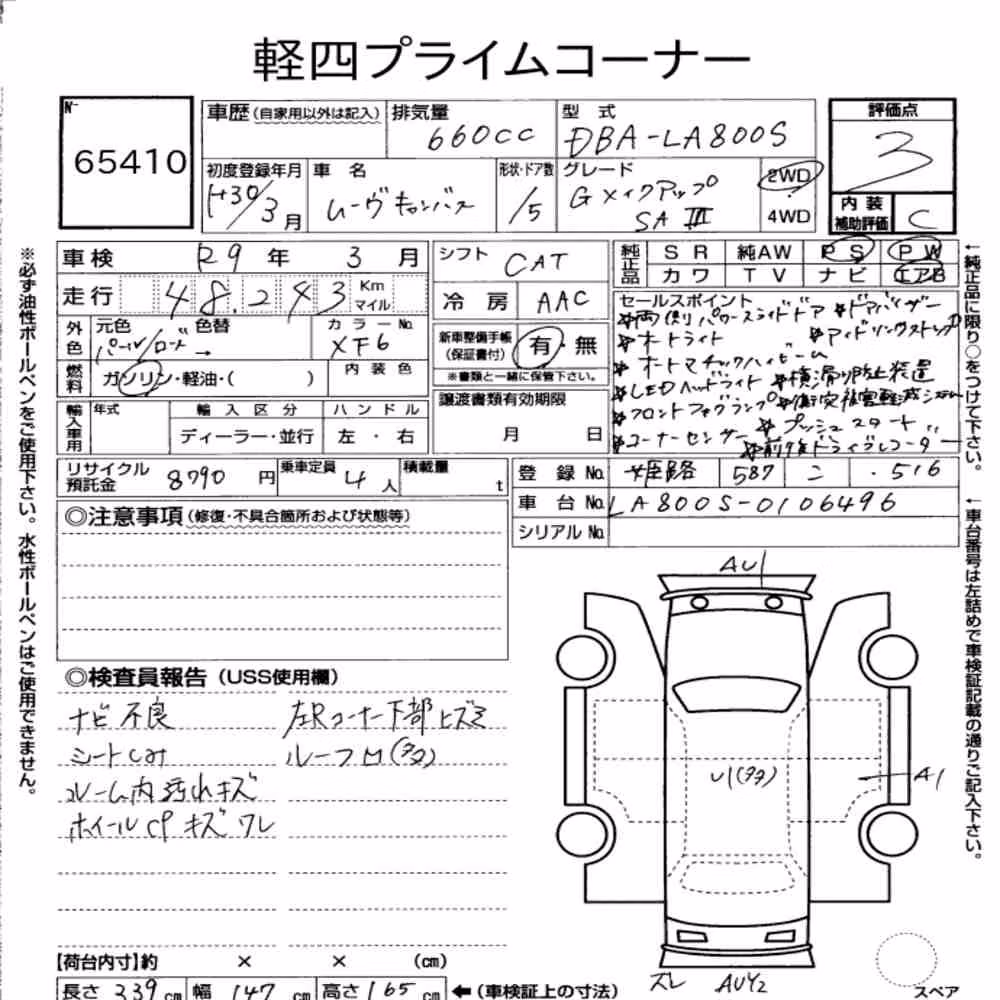 軽四プライムコーナー
No. 65410
車歴(自家用以外は記入) 排気量 660cc 型式 DBA-LA800S 評価点 3
初度登録年月 H30/3月 車名 ムーヴキャンバス 形状・ドア数 /5 グレード Gメイクアップ SAⅢ 2WD 4WD 内装補助評価 C
車検 R9年 3月 シフト CAT 純正品 SR 純AW PS PW
走行 48,243 Km マイル 冷房 AAC カワ TV ナビ エアB
外色 元色 パール/ローズ → 色替 カラーNo. XF6 新車整備手帳(保証書付) 有・無
※書類と一緒に保管下さい。
燃料 ガソリン・軽油・( ) 内装色
輸入車用 年式 輸入区分 ハンドル 譲渡書類有効期限
ディーラー・並行 左・右 月 日
セールスポイント
※両側パワースライドドア ※ドアバイザー
※オートライト ※アイドリングストップ
※オートマチックハイビーム
※LEDヘッドライト ※横滑り防止装置
※フロントフォグランプ ※衝突被害軽減システム
※コーナーセンサー ※プッシュスタート
※前後ドライブレコーダー
リサイクル預託金 8790円 乗車定員 4人 積載量 t
登録No. 姫路 587 こ ・516
車台No. LA800S-0106496
シリアルNo.
◎注意事項(修復・不具合箇所および状態等)
◎検査員報告(USS使用欄)
ナビ不良 左Rコーナー下部ヒズミ
シートしみ ルーフ凹(多タ)
ルーム内汚れキズ
ホイールCPキズワレ
AU1
U1(多タ)
A1
ズレ AUY2
スペア
【荷台内寸】約 × × (cm)
長さ 339cm 幅 147cm 高さ 165cm ←(車検証上の寸法)
※必ず油性ボールペンをご使用下さい。水性ボールペンはご使用できません。
←純正品に限り○をつけて下さい。
←車台番号は左詰めで車検証記載の通りご記入下さい。